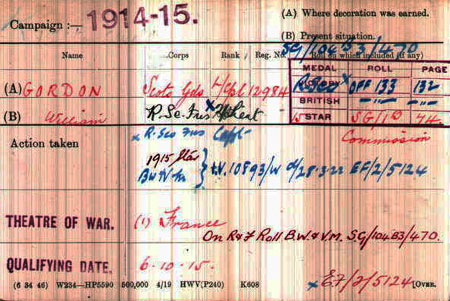 Campaign :— 1914-15.
(A) Where decoration was earned.
(B) Present situation.
SG/104B3/470
Name Corps Rank Reg. No.
MEDAL ROLL PAGE
(A) GORDON Scots Gds 12984
Off 133 132
BRITISH
(B) William R. Sc. Fus
STAR SG/1 74
Action taken
x R. Sco Fus Capt
Commission
1915 Star
BW & Vm } IV. 10893/W d/28.3.22 EF/2/5124
THEATRE OF WAR. (1) France
On R & F Roll B.W. & V.M. SG/104B3/470.
QUALIFYING DATE. 6-10-15.
(6 34 46) W234—HP5590 560,000 4/19 HWV(P240) K608
x EF/2/5124 [OVER.